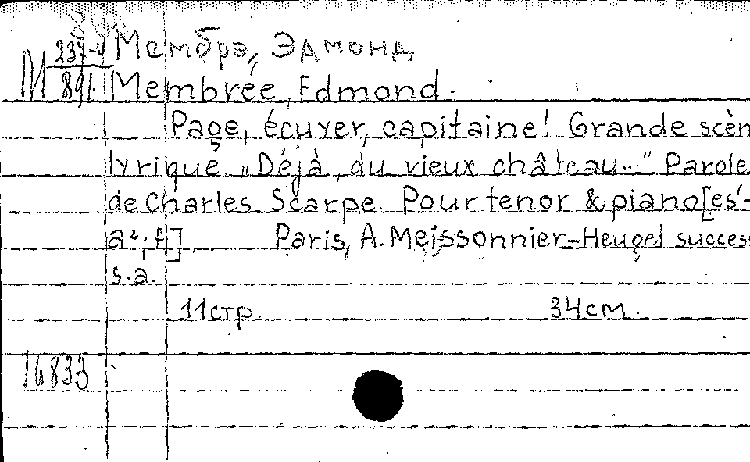 Мембрэ, Эдмонд
M 891 Membrée, Edmond.
Page, écuyer, capitaine! Grande scèn
lyrique „Déjà, du vieux château..." Parole
de Charles Scarpe. Pour tenor & piano [es'-
a²; f]. Paris, A. Meissonnier-Heugel success
s.a.
11 стр. 34 см.
16833